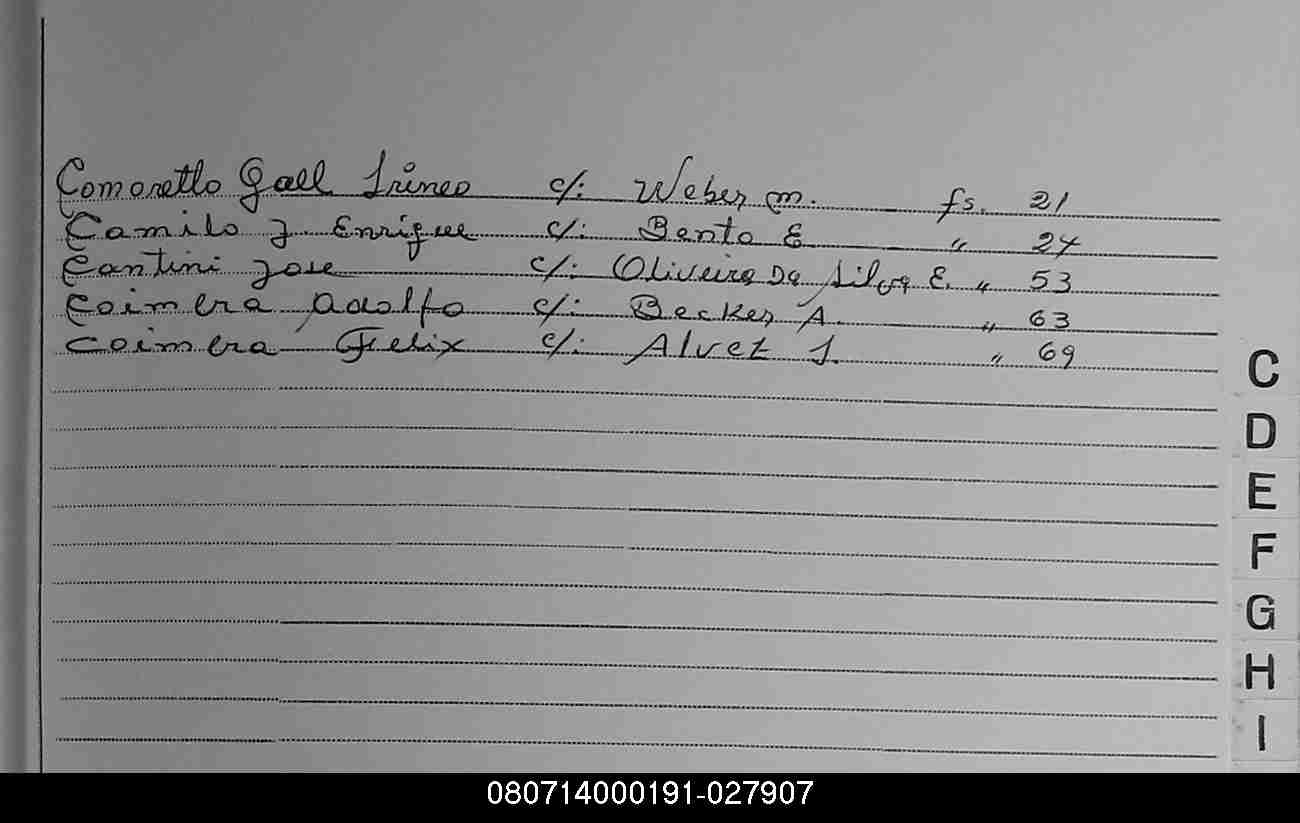 Comoretto Gall Irineo c/: Weber m. fs. 21
Camilo J. Enrique c/: Bento E " 24
Cantini Jose c/: Oliveira Da Silva E. " 53
Coimbra Adolfo c/: Becker A. " 63
Coimbra Felix c/: Alvez J. " 69
C
D
E
F
G
H
I
080714000191-027907